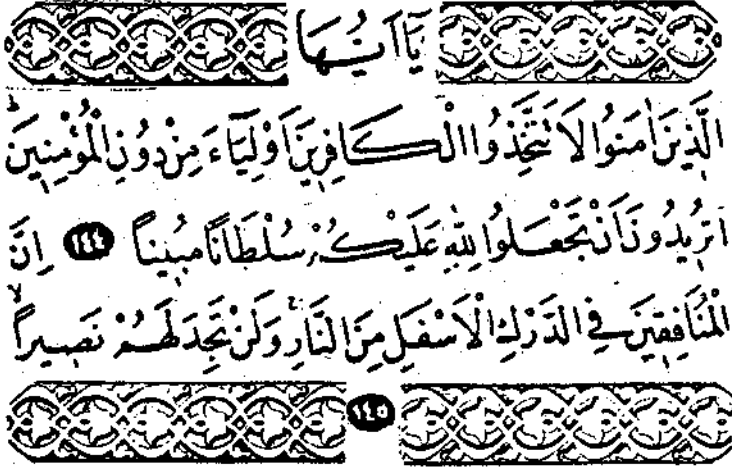 يَٓا اَيُّهَا
الَّذ۪ينَ اٰمَنُوا لَا تَتَّخِذُوا الْكَافِر۪ينَ اَوْلِيَٓاءَ مِنْ دُونِ الْمُؤْمِن۪ينَۜ
اَتُر۪يدُونَ اَنْ تَجْعَلُوا لِلّٰهِ عَلَيْكُمْ سُلْطَانًا مُب۪ينًا ﴿١٤٤﴾ اِنَّ
الْمُنَافِق۪ينَ فِي الدَّرْكِ الْاَسْفَلِ مِنَ النَّارِۚ وَلَنْ تَجِدَ لَهُمْ نَص۪يرًاۙ
﴿١٤٥﴾